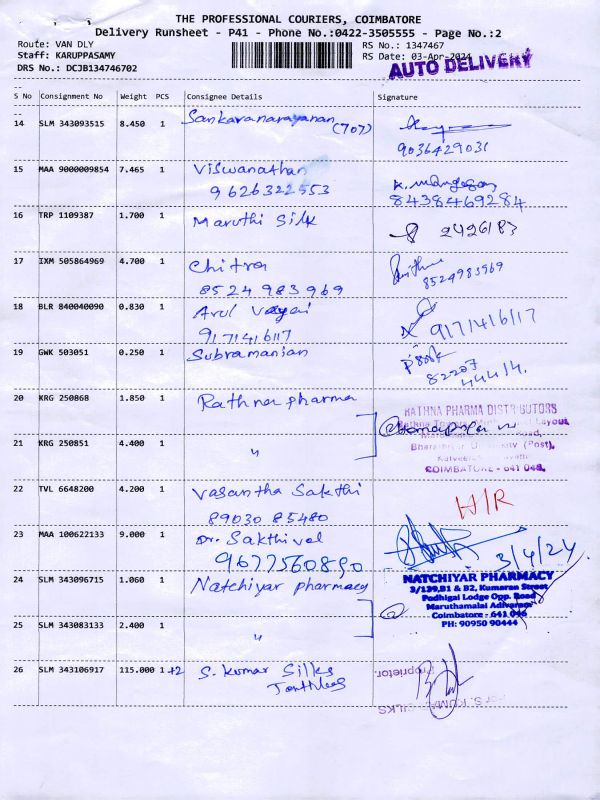 THE PROFESSIONAL COURIERS, COIMBATORE
Delivery Runsheet - P41 - Phone No.:0422-3505555 - Page No.:2
Route: VAN DLY
RS No.: 1347467
Staff: KARUPPASAMY
RS Date: 03-Apr-2024
DRS No.: DCJB134746702
AUTO DELIVERY
S No Consignment No Weight PCS Consignee Details Signature
14 SLM 343093515 8.450 1 Sankaranarayanan
(707)
9036429031
15 MAA 9000009854 7.465 1 Viswanathan
9626322553
8438469284
16 TRP 1109387 1.700 1 Maruthi Silk
17 IXM 505864969 4.700 1 Chitra
8524 983 969
8524983969
18 BLR 840040090 0.830 1 Arul
9171416117
9171416117
19 GWK 503051 0.250 1 Subramanian
82207
44414.
20 KRG 250868 1.850 1 Rathna pharma
RATHNA PHARMA DISTRIBUTORS
21 KRG 250851 4.400 1 "
COIMBATORE - 641 046.
22 TVL 6648200 4.200 1 Vasantha Sakthi
89030 85480
H/R
23 MAA 100622133 9.000 1 Dr. Sakthivel
9677560890
3/4/24
24 SLM 343096715 1.060 1 Natchiyar pharmacy
NATCHIYAR PHARMACY
3/139,B1 & B2, Kumaran Street
Podhigai Lodge Opp. Road
Maruthamalai Adivaram
Coimbatore - 641 046
PH: 90950 90444
25 SLM 343083133 2.400 1 "
26 SLM 343106917 115.000 1 +2 S. Kumar Silks
Proprietor.
For S. KUMAR SILKS